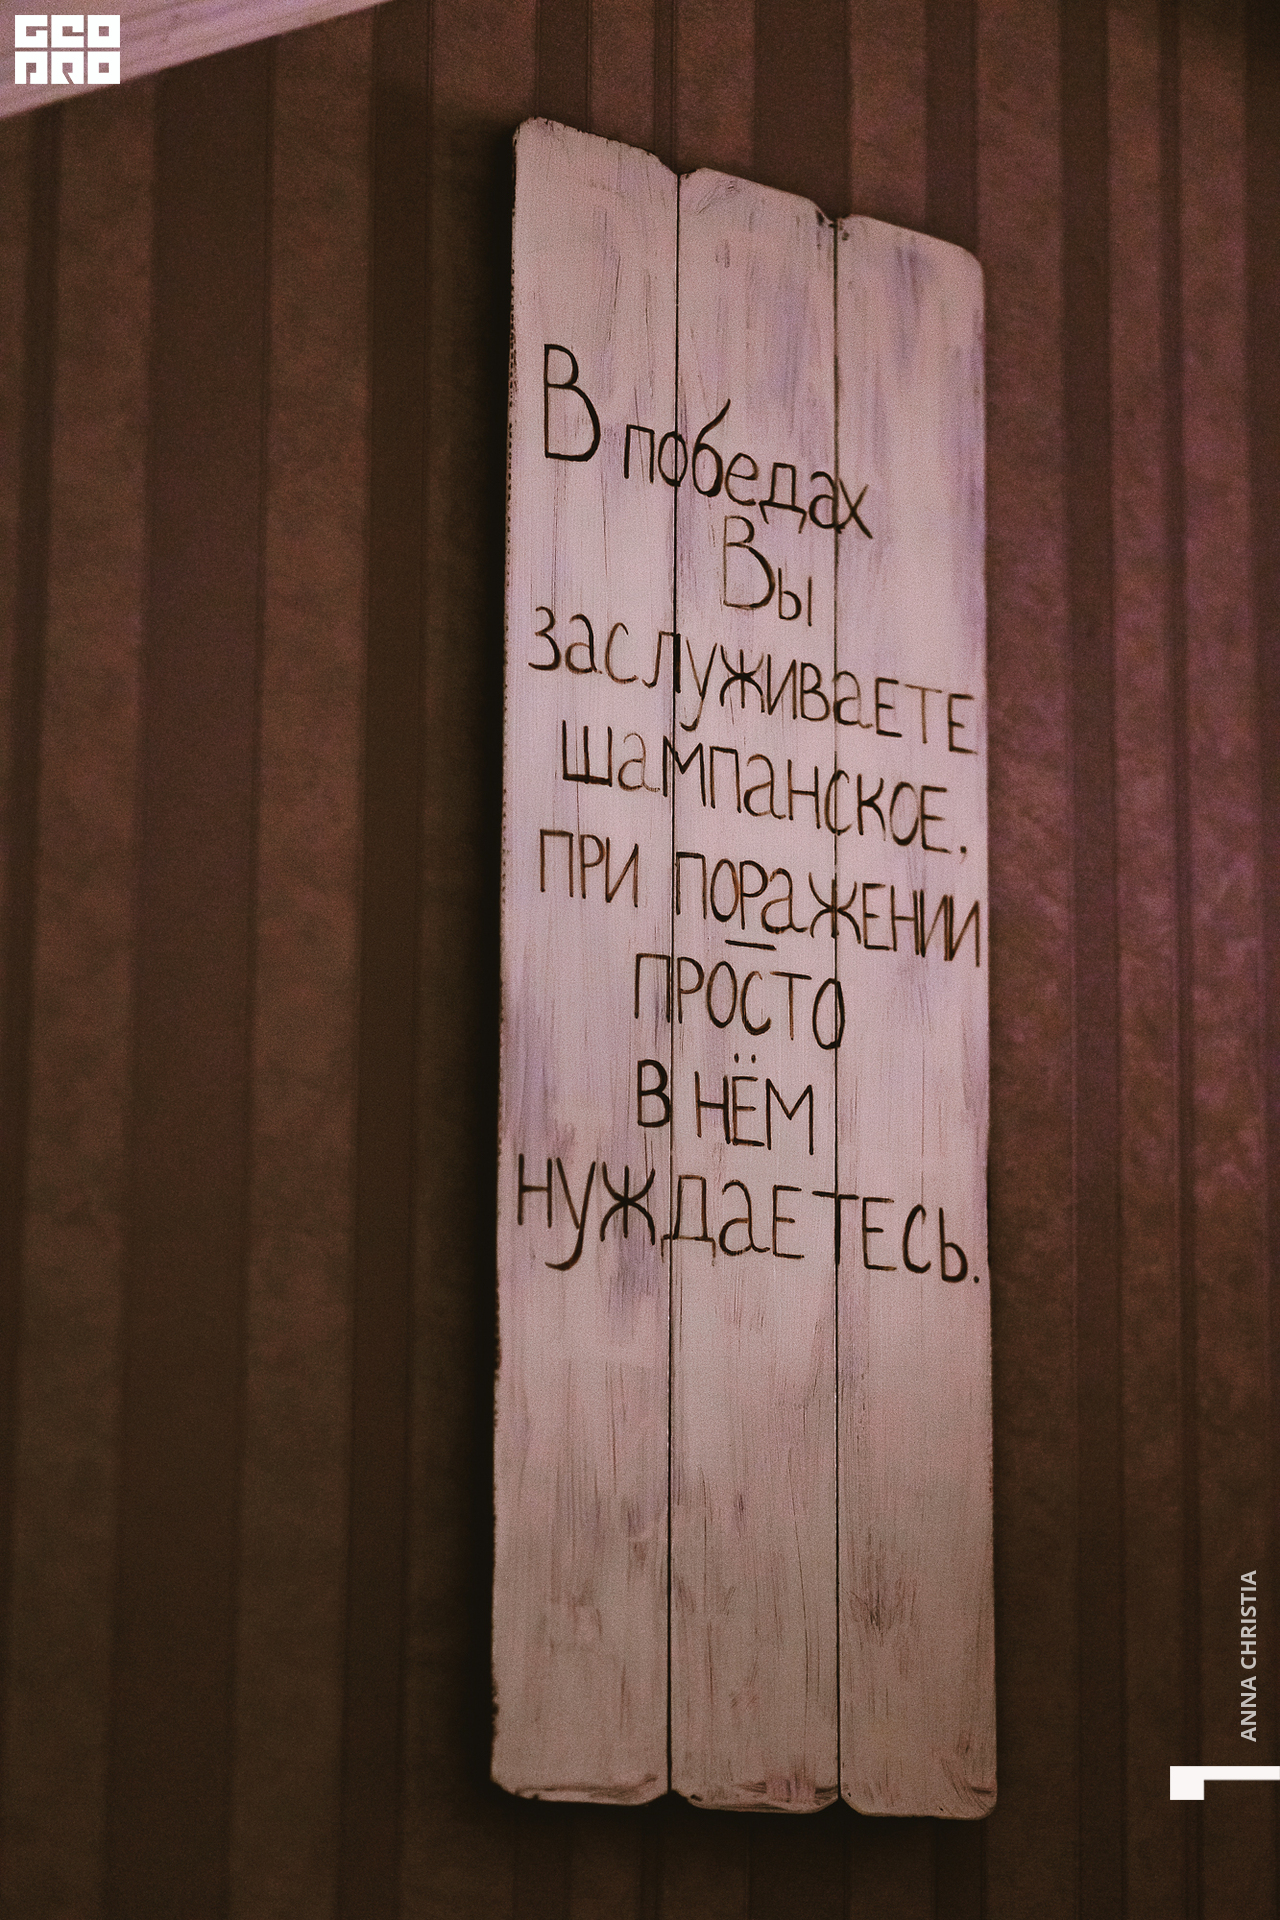 GEO
PRO
В победах
Вы
заслуживаЕТЕ
шампанскОЕ,
ПРИ ПОРаЖЕНИИ
ПРОСТО
В НЁМ
НУЖДаЕТЕСЬ.
ANNA CHRISTIA